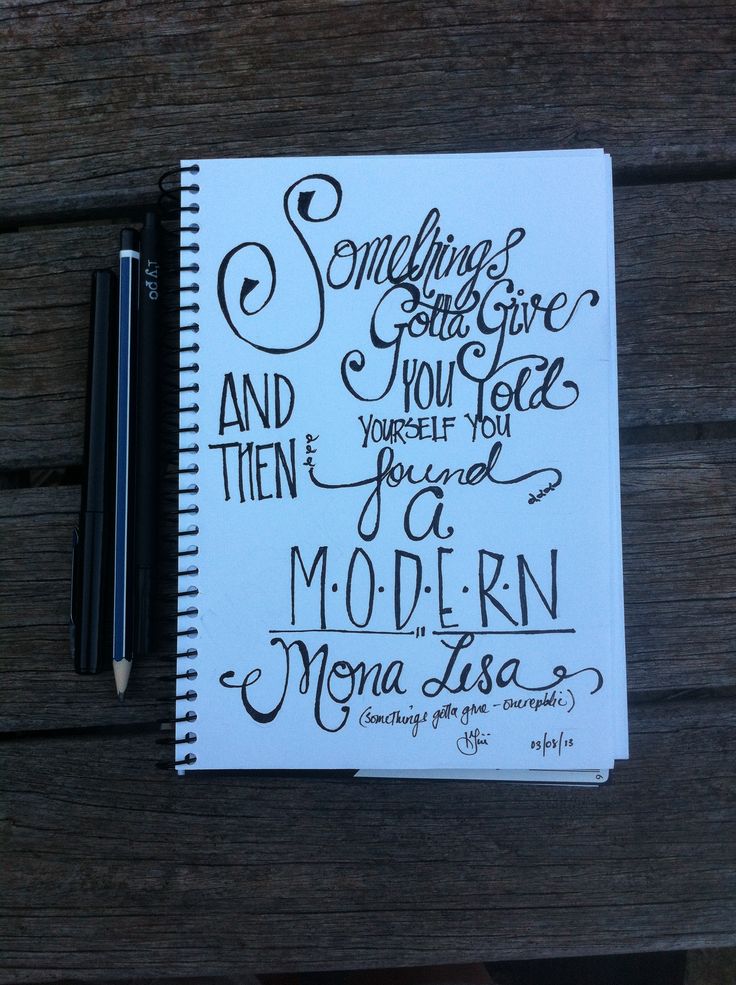 Somethings
Gotta Give
AND THEN
YOU Told
YOURSELF YOU
found
a
M·O·D·E·R·N
Mona Lisa
(something's gotta give - onerepublic)
03/08/13
typo